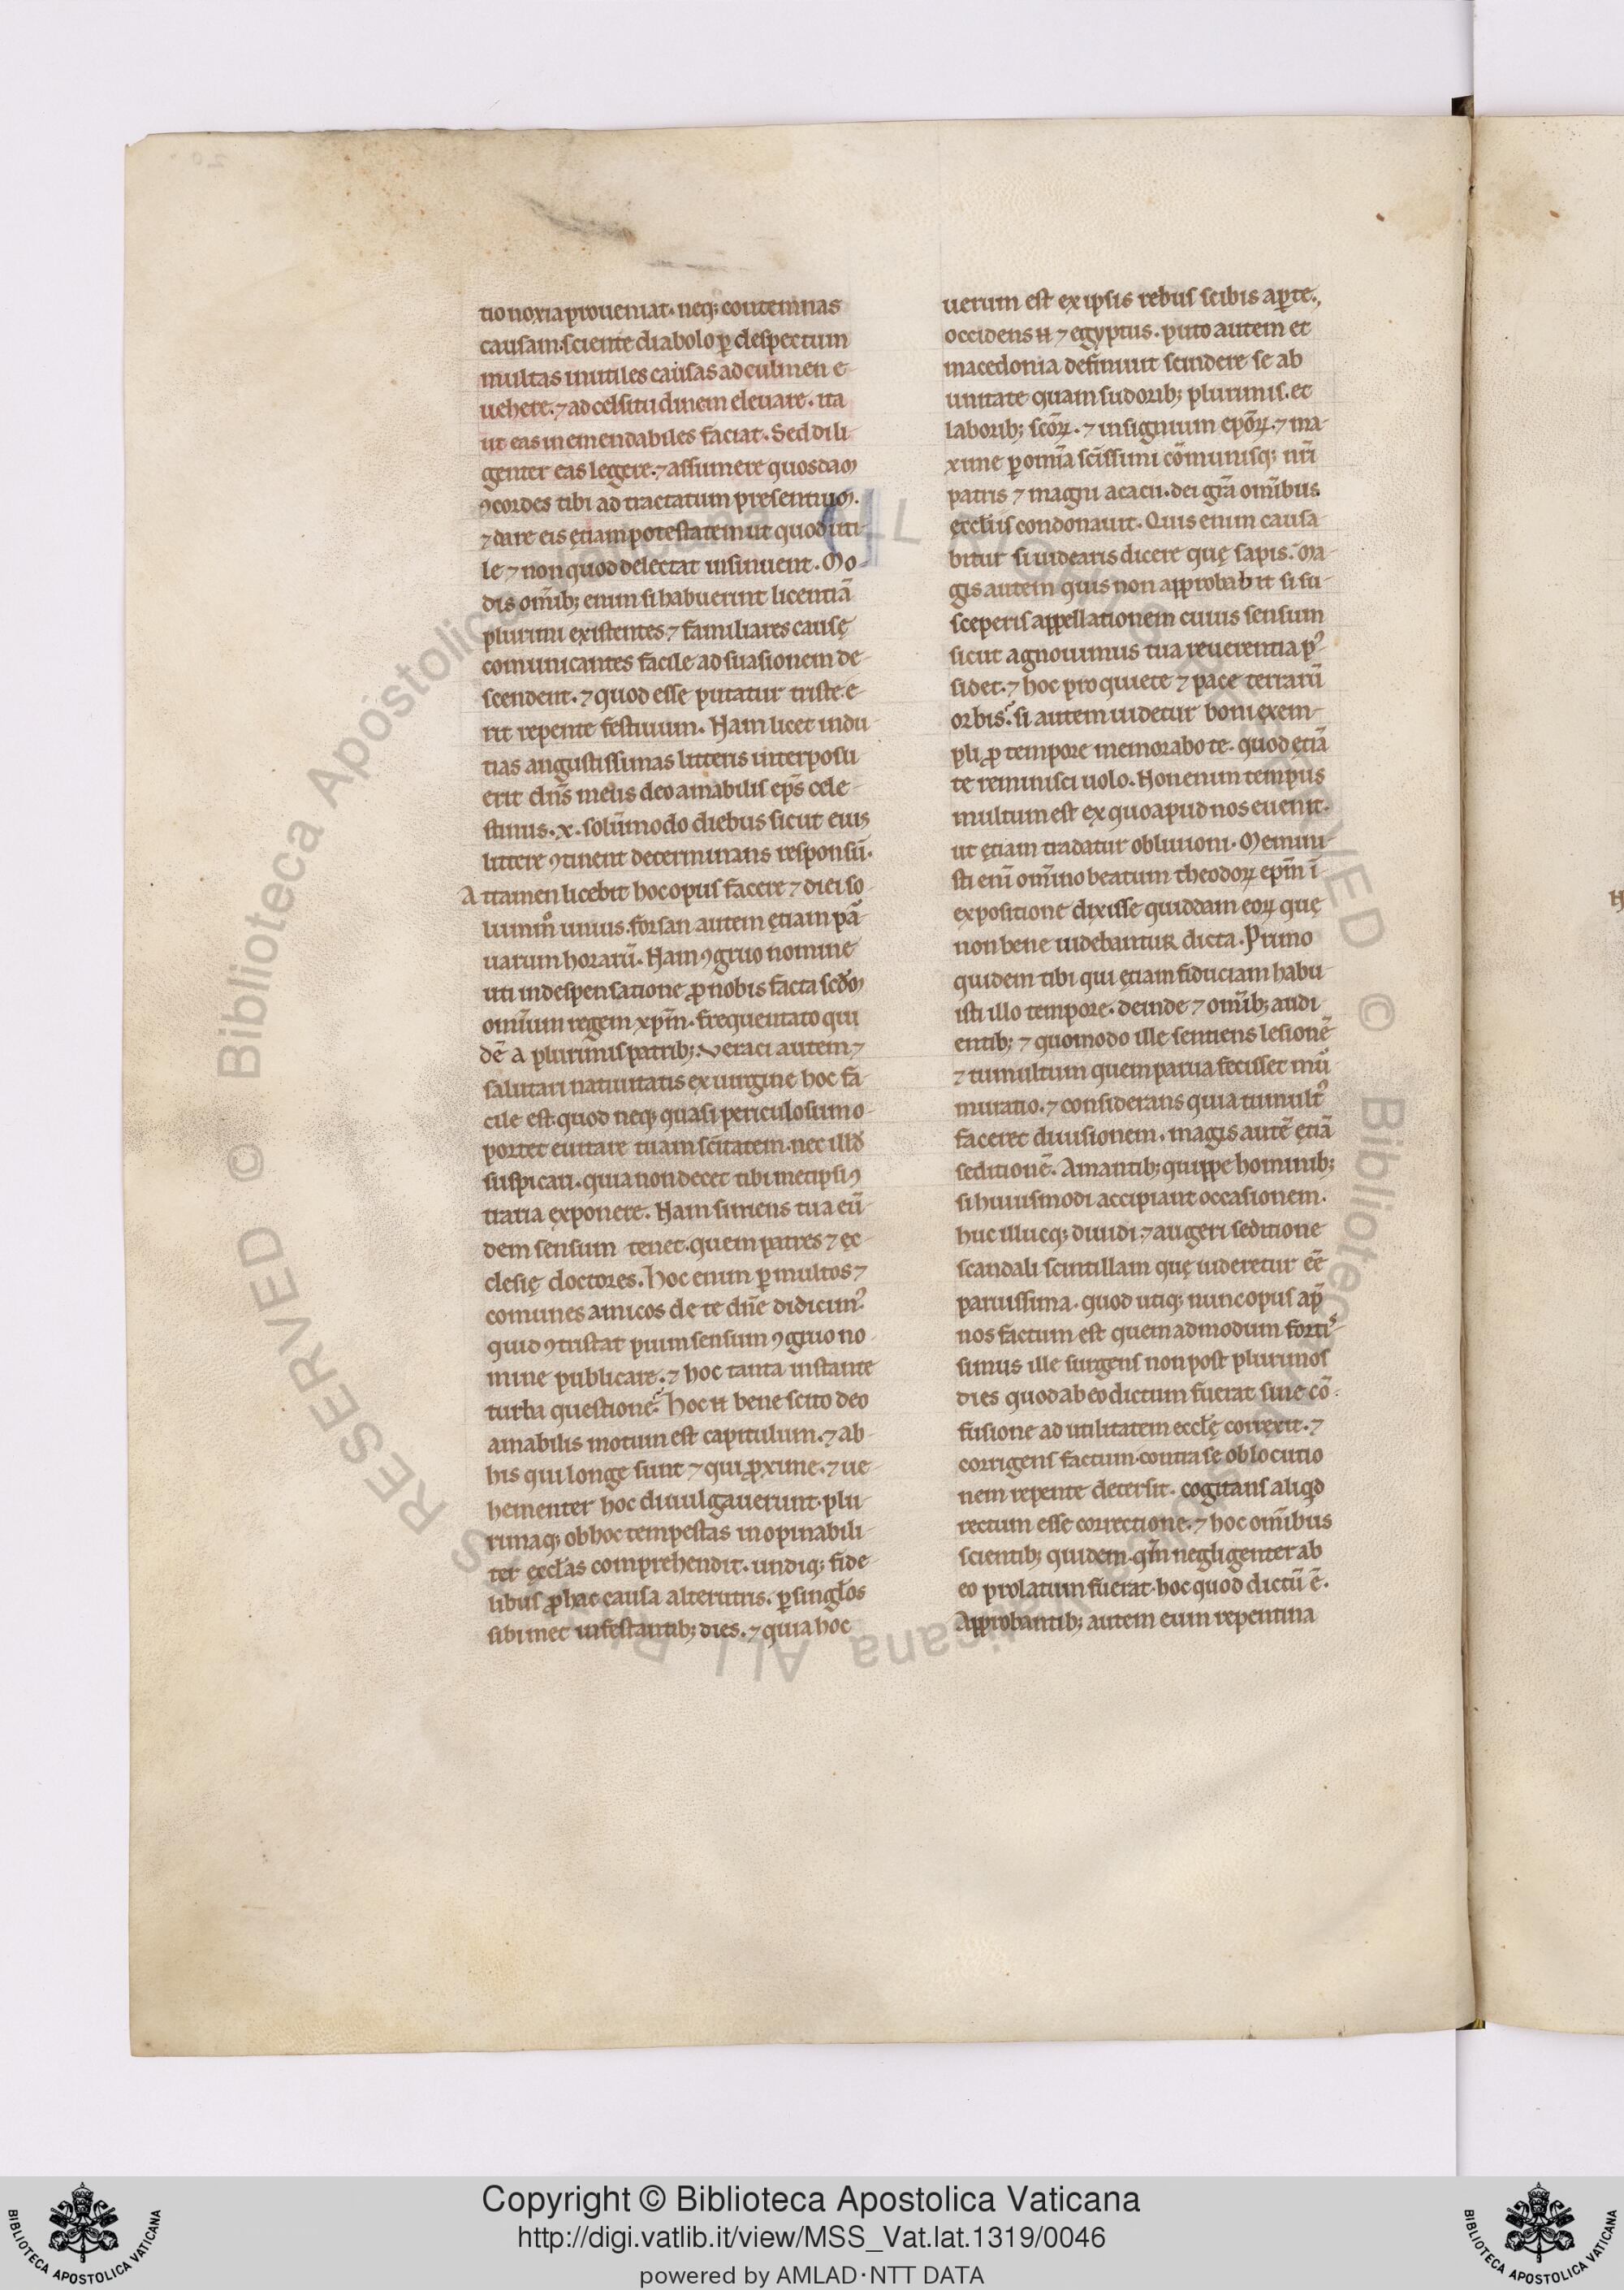 tio noxia proueniat. neq; contemnas
causam. sciente diabolo ꝑ despectum
multas inutiles causas ad culmen e-
uehere. ⁊ ad celsitudinem eleuare. ita
ut eas inemendabiles faciat. Sed dili-
genter eas legere. ⁊ assumere quosdam
ꝯcordes tibi ad tractatum presentium.
⁊ dare eis ętiam potestatem ut quod uti-
le ⁊ non quod delectat insinuent. Mo-
dis om̄ib; enim si habuerint licentiā
plurimi existentes ⁊ familiares causę
comunicantes facile ad suasionem de-
scendent. ⁊ quod esse putatur triste. e-
rit repente festiuum. Nam licet indu-
tias angustissimas litteris interposu
erit dn̄s meus deo amabilis ep̄s cele-
stinus. x. solūmodo diebus sicut eius
littere ꝯtinent determinans responsū.
Attamen licebit hoc opus facere ⁊ diei so-
lummͦ unius. forsan autem ętiam pau-
uarum horarū. Nam ꝯgruo nomine
uti indespensatione ꝓ nobis facta scd̄m
omnium regem xp̄m. frequentato qui
dē a plurimis patrib; ueraci autem ⁊
salutari natiuitatis ex uirgine hoc fa-
cile est. quod neq; quasi periculosum o-
portet euitare tuam sc̄itatem. nec illd̄
suspicari. quia non decet tibimetipsi ꝯ
traria exponere. Nam si mens tua eū-
dem sensum tenet. quem patres ⁊ ęc-
clesię doctores. hoc enim ꝑ multos ⁊
comunes amicos de te dn̄e didicim᾽.
quid ꝯtristat pium sensum ꝯgruo no-
mine publicare. ⁊ hoc tanta instante
turba questione. hoc n̄ bene scito deo
amabilis motum est capitulum. ⁊ ab
his qui longe sunt ⁊ qui ꝓxime. ⁊ ue-
hementer hoc diuulgauerunt. plu-
rimaq; ob hoc tempestas inopinabili-
ter ęccl̄as comprehendit. undiq; fide-
libus ꝓ hac causa alterutris. ꝑ singl̄os
sibimet infestantib; dies. ⁊ quia hoc
uerum est ex ipsis rebus scibis aꝑte.
occidens n̄ ⁊ egyptus. puto autem et
macedonia definiuit scindere se ab
unitate quam sudorib; plurimis. et
laborib; scōꝝ. ⁊ insignium epōꝝ. ⁊ ma-
xime ꝑ omīa sc̄issimi cōmunisq; nr̄i
patris ⁊ magni acacii. dei gr̄a om̄ibus
ęccl̄iis condonauit. Quis enim causa-
bitur si uidearis dicere quę sapis. Ma-
gis autem quis non approbabit si su-
sceperis appellationem cuius sensum
sicut agnouimus tua reuerentia p᾽-
sidet. ⁊ hoc pro quiete ⁊ pace terrarū
orbis. si autem uidetur boni exem-
pli ꝓ tempore memorabo te. quod ętiā
te reminisci uolo. Non enim tempus
multum est ex quo apud nos euenit.
ut ętiam tradatur obliuioni. Memini-
sti enī om̄ino beatum theodoꝝ ep̄m ī-
expositione dixisse quiddam eoꝝ quę
non bene uidebantur dicta. Primo
quidem tibi qui ętiam fiduciam habu-
isti illo tempore. deinde ⁊ om̄ib; audi
entib; ⁊ quomodo ille sentiens lesionē
⁊ tumultum quem parua fecisset mu᾽
muratio. ⁊ considerans quia tumult᾽
faceret diuisionem. magis autē ętiā
seditionē. Amantib; quippe hominib;
si huiusmodi accipiant occasionem.
huc illucq; diuidi. ⁊ augeri seditione
scandali scintillam quę uideretur eē
paruissima. quod utiq; nunc opus ap̄
nos factum est quemadmodum fortis-
simus ille surgens non post plurimos
dies quod ab eo dictum fuerat sine cō-
fusione ad utilitatem eccl̄ę correxit. ⁊
corrigens factum. contra se oblocutio
nem repente detersit. cogitans aliqd̄
rectum esse correctione. ⁊ hoc om̄ibus
scientib; quidem. qm̄ negligenter ab
eo prolatum fuerat. hoc quod dictū ē.
Approbantib; autem eum repentina
Copyright © Biblioteca Apostolica Vaticana
http://digi.vatlib.it/view/MSS_Vat.lat.1319/0046
powered by AMLAD·NTT DATA
BIBLIOTECA APOSTOLICA VATICANA
BIBLIOTECA APOSTOLICA VATICANA